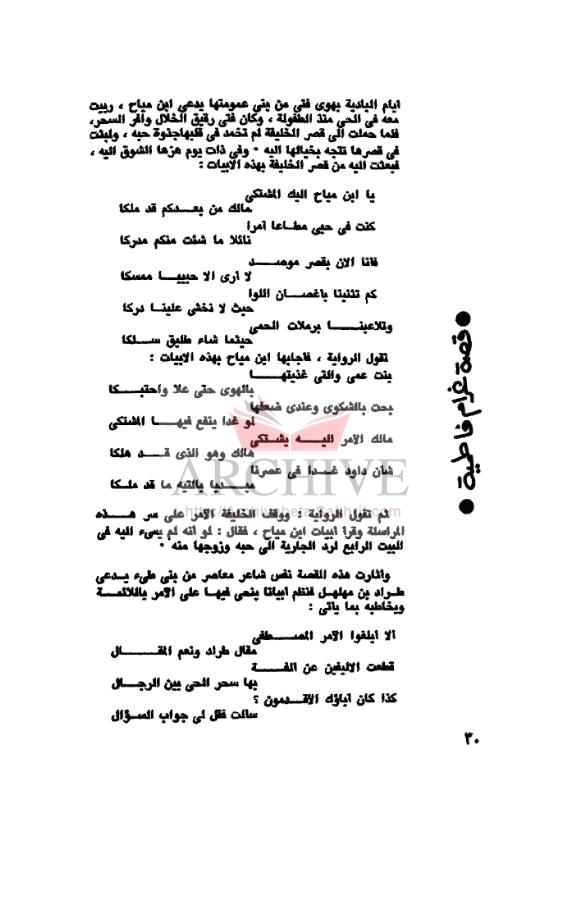 ايام البادية يهوى فتى من بنى عمومتها يدعى ابن مياح ، ربيت
معه فى الحى منذ الطفولة ، وكان فتى رقيق الخلال وافر السحر،
فلما حملت الى قصر الخليفة لم تخمد فى قلبها جذوة حبه ، ولبثت
فى قصرها تتجه بخيالها اليه ٠ وفى ذات يوم هزها الشوق اليه ،
فبعثت اليه من قصر الخليفة بهذه الابيات :
يا ابن مياح اليك المشتكى
مالك من بعدكم قد ملكا
كنت فى حيى مطاعا آمرا
نائلا ما شئت منكم مدركا
فانا الان بقصر موصد
لا ارى الا حبيبا ممسكا
كم تثنينا باغصان اللوا
حيث لا نخشى علينا دركا
وتلاعبنا برملات الحمى
حيثما شاء طليق سلكا
تقول الرواية ، فاجابها ابن مياح بهذه الابيات :
بنت عمى والتى غذيتها
بالهوى حتى علا واحتبكا
بحت بالشكوى وعندى ضعفها
لو غدا ينفع فيها المشتكى
مالك الامر اليه يشتكى
مالك وهو الذى قد هلكا
شان داود غدا فى عصرنا
مبديا بالتيه ما قد ملكا
ARCHIVE
http://Archivebeta.Sakhrit.com
ثم تقول الرواية : ووقف الخليفة الآمر على سر هذه
المراسلة وقرأ ابيات ابن مياح ، فقال : لو انه لم يسىء اليه فى
البيت الرابع لرد الجارية الى حبه وزوجها منه ٠
واثارت هذه القصة نفس شاعر معاصر من بنى طىء يدعى
طراد بن مهلهل فنظم ابياتا ينحى فيها على الآمر باللائمة
ويخاطبه بما ياتى :
الا ابلغوا الآمر المصطفى
مقال طراد ونعم المقال
قطعت الاليفين عن الفة
بها سحر الحى بين الرجال
كذا كان آباؤك الاقدمون ؟
سالت فقل لى جواب السؤال
● قصة غرام فاطمية ●
٣٠